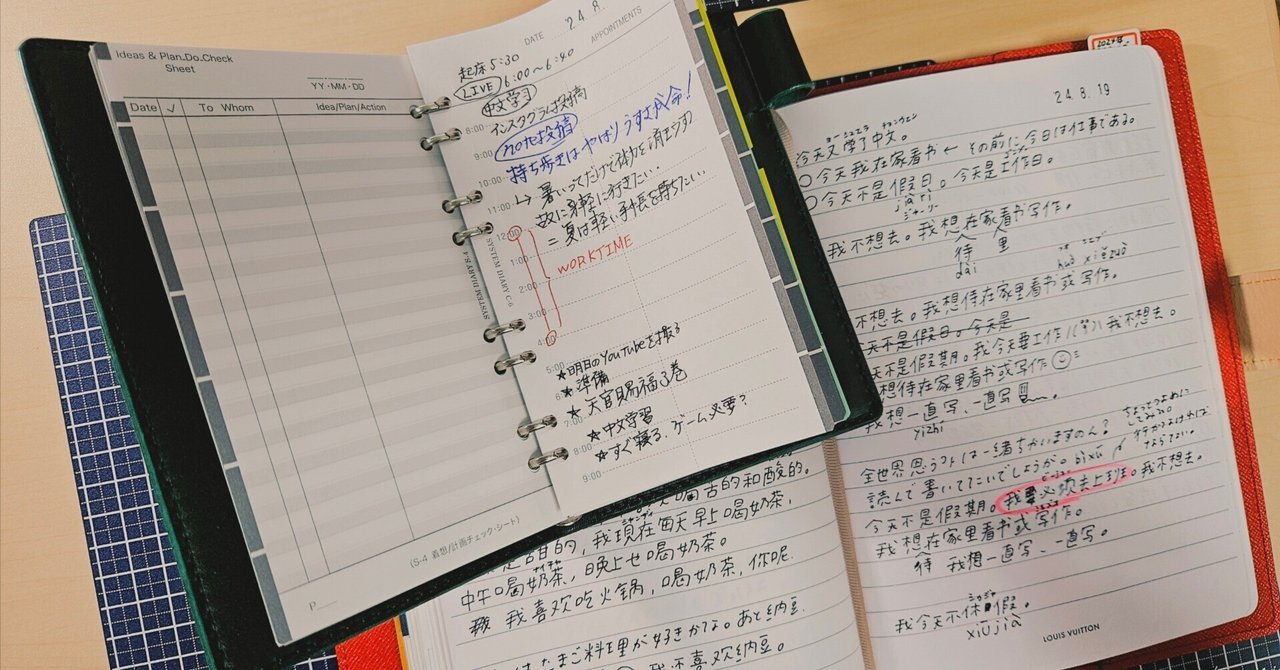 Ideas & Plan.Do.Check
Sheet
YY・MM・DD
Date ✓ To Whom Idea/Plan/Action
(S-4 着想/計画チェック・シート)
P
DATE 24.8.
APPOINTMENTS
起床5:30
LIVE 6:00~6:40
中文学习
8:00 インスタグラム投稿
9:00 note投稿
10:00 持ち歩きはやはりうすさが命!
11:00 → 暑いってだけで体力を消耗する
故に身軽に行きたい…
=夏は軽い手帳を持ちたい…
12:00
1:00 WORKTIME
2:00
3:00
4:00
5:00 ★明日のYouTubeを撮る
6:00 ★準備
7:00 ★天官賜福3巻
★中文学習
8:00 ★すぐ寝る、ゲーム必要?
9:00
SYSTEM DIARY C-6
SYSTEM DIARY S-4
2024年
24.8.19
今天又学了中文。
○今天我在家看书 ← その前に今日は仕事である。
○今天不是假日。今天是工作日。
jià rì
ジャーリー
我不想去。我想在家看书写作。
待 里
dāi
huò xiězuò
不想去。我想待在家里看书或写作。
天不是假日。今天是
天不是假期。我今天要工作 我不想去。
想待在家里看书或写作
我想一直写、一直写
yīzhí
ちょっとつよめに
してみる。
行かなければ
ならない。
全世界思うコトは一緒ちがいますのん?
読んで書いててこいでしょうが。 bìxū
今天不是假期。我必须去上班。我不想去。
我想在家里看书或写作。
待 我想一直写、一直写。
我今天不休假。
xiūjià
LOUIS VUITTON
和酸的。
甘的,我現在每天早上喝奶茶,
中午喝奶茶,晚上也喝奶茶。
我喜欢吃火锅,喝奶茶,你呢
たまご料理が好きかな。あと納豆
我不喜欢納豆。